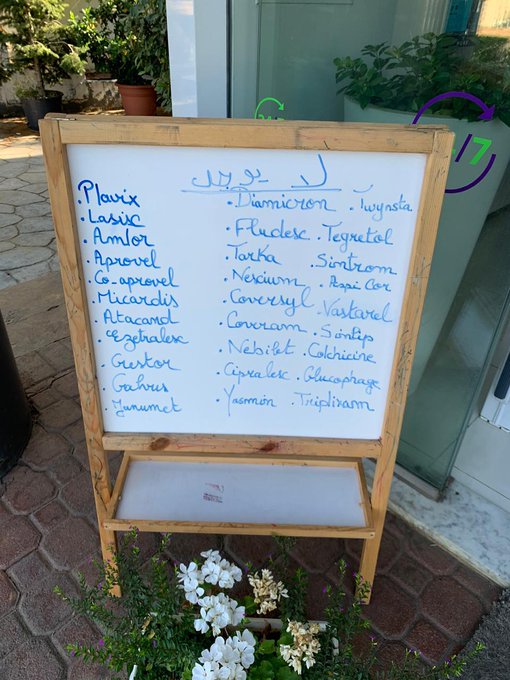 لا يوجد
.Plavix
.Lasix
.Amlor
.Aprovel
.Co-aprovel
.Micardis
.Atacand
.Ezetralesc
.Crestor
.Galvus
.Janumet
.Diamicron
.Fludesc
Tarka
.Nexium
.Coversyl
.Coveram
.Nebilet
.Cipralesc
.Yasmin
.Twynsta
.Tegretol
.Sintrom
.Aspi Cor
.Vastarel
.Santip
.Colchicine
.Glucophage
.Triplixam
24/7